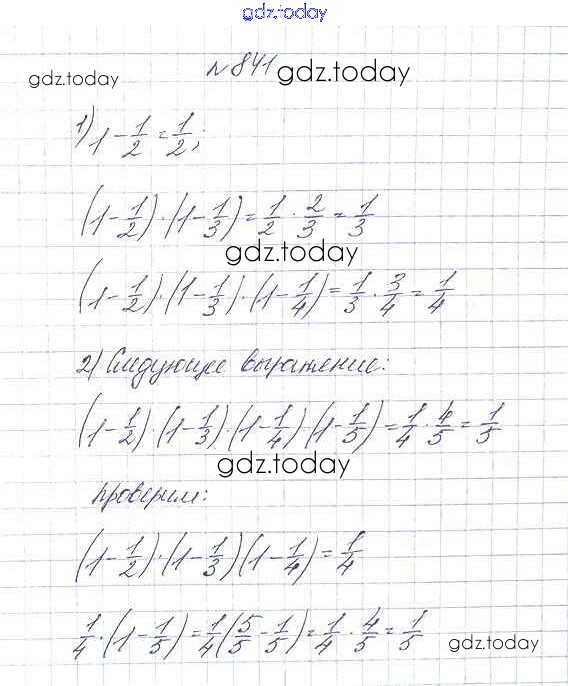 gdz.today
gdz.today
№841 gdz.today
1) 1 - 1/2 = 1/2;
(1 - 1/2) · (1 - 1/3) = 1/2 · 2/3 = 1/3
gdz.today
(1 - 1/2) · (1 - 1/3) · (1 - 1/4) = 1/3 · 3/4 = 1/4
2) Следующее выражение:
(1 - 1/2) · (1 - 1/3) · (1 - 1/4) (1 - 1/5) = 1/4 · 4/5 = 1/5
gdz.today
проверим:
(1 - 1/2) · (1 - 1/3) (1 - 1/4) = 1/4
1/4 · (1 - 1/5) = 1/4 (5/5 - 1/5) = 1/4 · 4/5 = 1/5
gdz.today